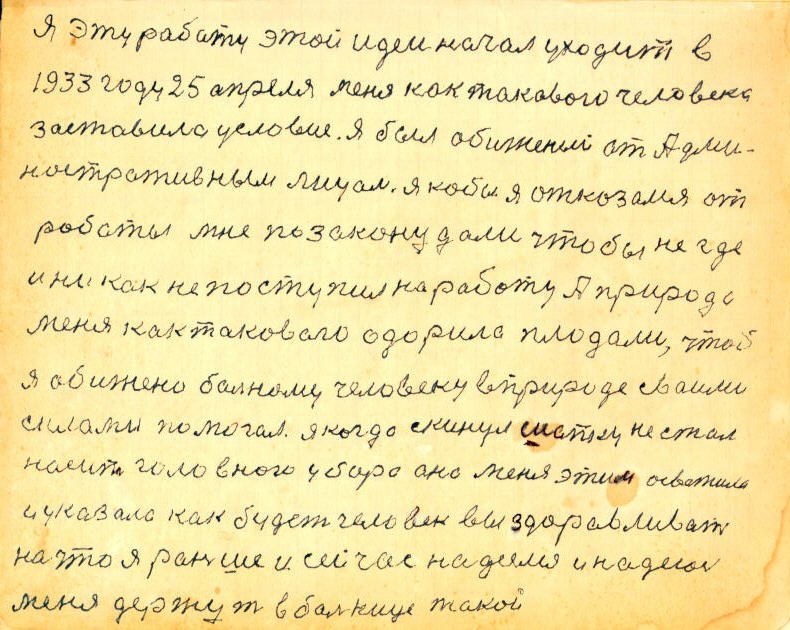 Я эту работу этой идеи начал уходить в
1933 году 25 апреля меня как такавого человека
заставила условие. Я был обижений от Адми-
ностративным лицам. якобы я отказамя от
работы мне по закону дали чтобы не где
и ни как не поступил на работу А природа
меня как таковаго одорила плодами, чтоб
я обижено балному человеку в природе сваими
силами помогал. я когда скинул шапку не стал
насить головного убора она меня этим осветила
и указала как будет человек выздоравливать
на что я раньше и сейчас надеемя и надеюсь
меня держут в балнице такой